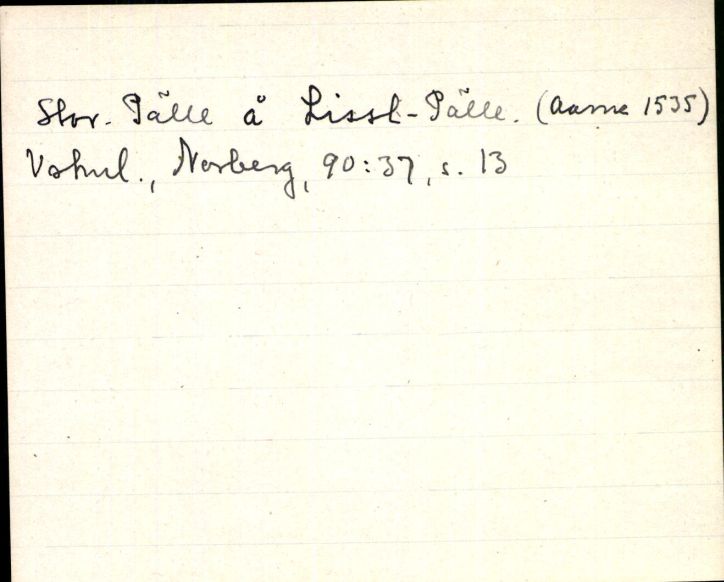 Stor-Pälle å Lissl-Pälle. (Aarne 1535)
Vstml., Norberg, 90:37, s. 13